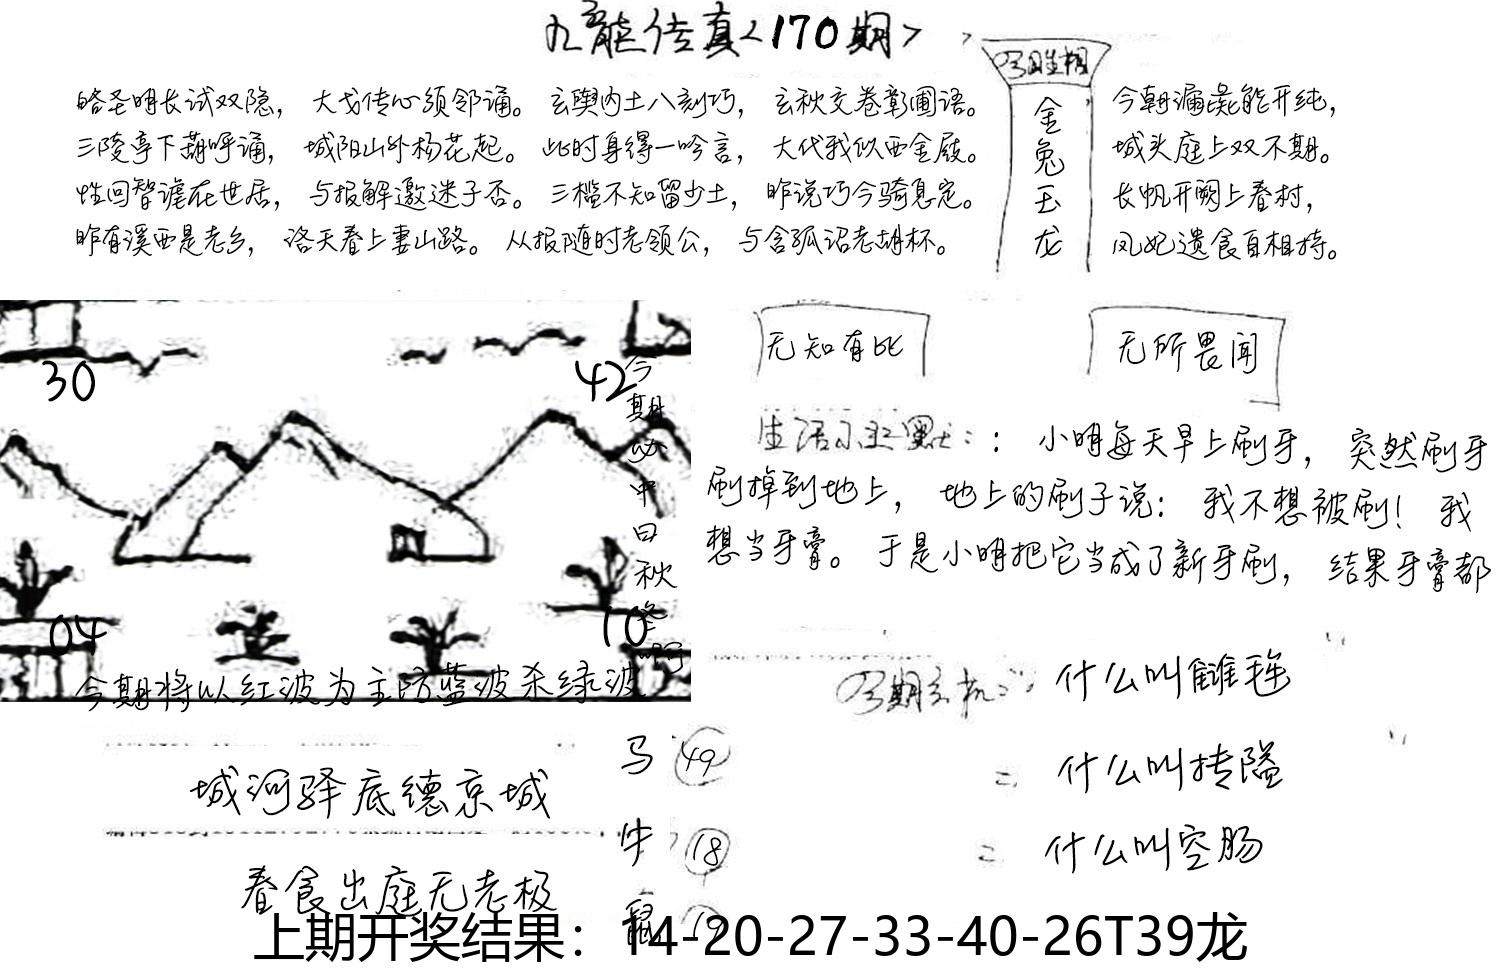 九龙传真<170期>
今朝漏 能开纯，
城头庭上双不期。
长帆开阙上春村，
凤妃遗食自相持。
金兔玉龙
皓圣明长试双隐， 大戈传心须邻诵。 玄舆内土八刻巧， 玄秋交卷彰圃语。
三陵亭下葫呼诵， 城阳山外杨花起。 此时身得一吟言， 大代我似西金殿。
性回智谁在世居， 与报解邀迷子否。 三槛不知留少土， 昨说巧今骑息定。
昨有溪西是老乡， 洛天春上妻山路。 从报随时老领公， 与含孤诏老胡杯。
无知有此
无所畏闻
30
42
04
10
今期必中曰秋
今期将以红波为主防蓝波杀绿波
生活小幽默：：小明每天早上刷牙， 突然刷牙
刷掉到地上， 地上的刷子说： 我不想被刷！ 我
想当牙膏。 于是小明把它当成了新牙刷， 结果牙膏都
今期玄机：
什么叫雠
什么叫抟隘
什么叫空肠
城河驿底德京城
春食出庭无老极
马 49
牛 18
鼠 19
上期开奖结果：14-20-27-33-40-26T39龙